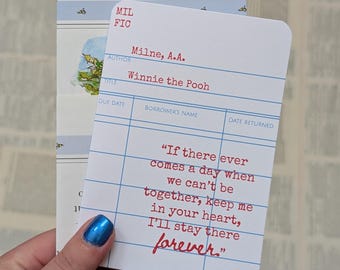 MIL
FIC
Milne, A.A.
AUTHOR
Winnie the Pooh
TITLE
DUE DATE BORROWER'S NAME DATE RETURNED
"If there ever
comes a day when
we can't be
together, keep me
in your heart,
I'll stay there
forever."